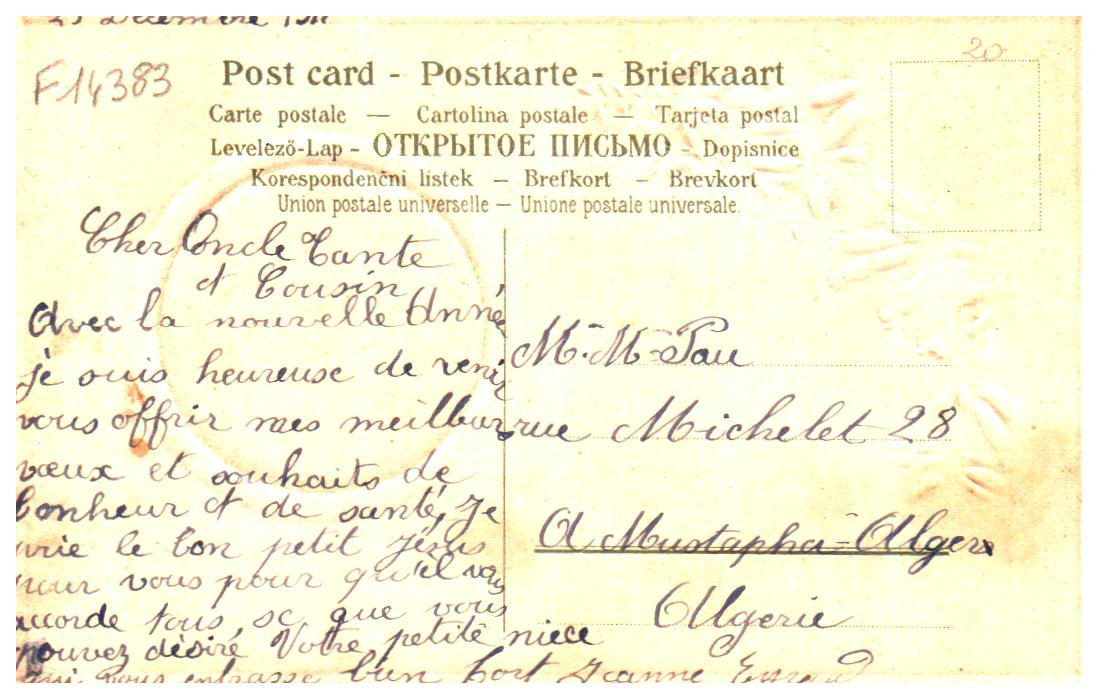 25 Decembre
F14383
20
Post card - Postkarte - Briefkaart
Carte postale — Cartolina postale — Tarjeta postal
Levelező-Lap - ОТКРЫТОЕ ПИСЬМО - Dopisnice
Korespondenčni listek — Brefkort — Brevkort
Union postale universelle — Unione postale universale.
Cher Oncle Tante
et Cousin
Avec la nouvelle Année
je suis heureuse de venir
vous offrir mes meilleurs
vœux et souhaits de
bonheur et de santé, je
prie le bon petit jésus
pour vous pour qu'il vous
accorde tous se que vous
pouvez désiré Votre petite niece
qui vous embrasse bien fort Jeanne
M. M. Pau
rue Michelet 28
A Mustapha-Alger
Algerie